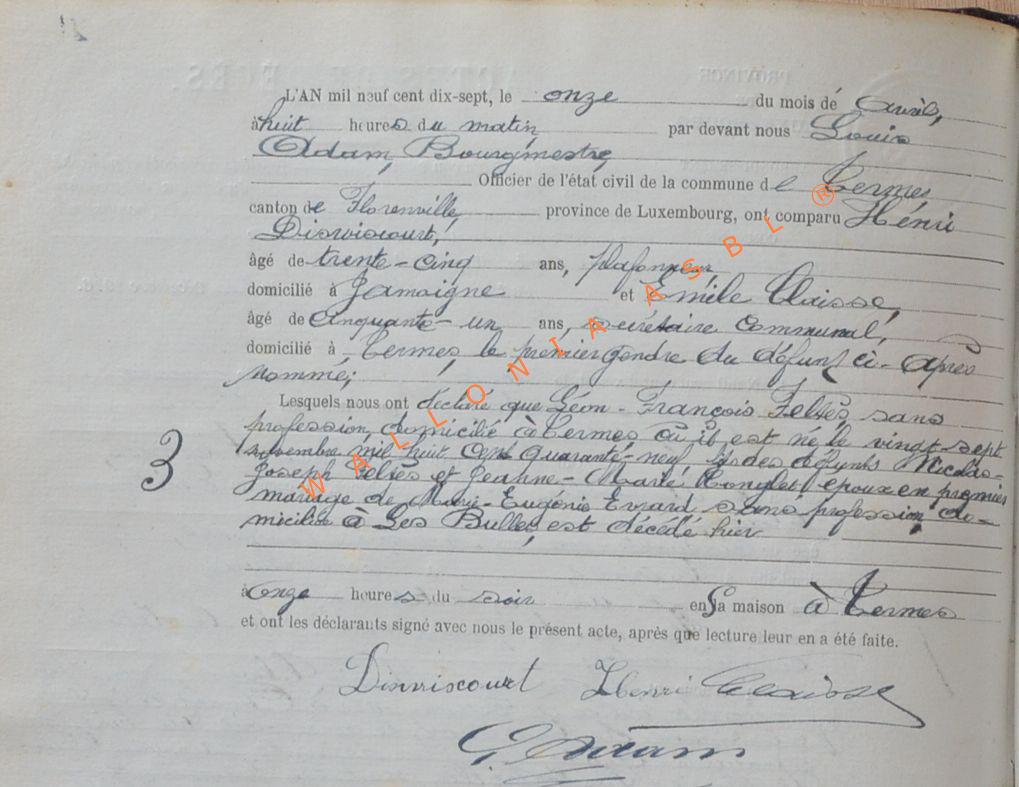 L'AN mil neuf cent dix-sept, le onze du mois de Avril,
à huit heures du matin, par devant nous Louis
Adam, Bourgmestre,
Officier de l'état civil de la commune de Termes,
canton de Florenville, province de Luxembourg, ont comparu Hénri
Disviscourt,
âgé de trente-cinq ans, plafonneur,
domicilié à Jamoigne et Emile Claisse,
âgé de cinquante-un ans, secrétaire communal,
domicilié à Termes, le premier gendre du défunt ci-après
nommé;
Lesquels nous ont déclaré que Léon-François sans
profession, domicilié à Termes, où il est né le vingt-sept
mil huit cent quarante-neuf, fils des défunts Nicolas-
Joseph et Jeanne-Marie époux en premier
mariage de Marie-Eugénie Evrard sans profession, do-
miciliée à Les Bulles, est décédé hier
à onze heures du soir en sa maison à Termes
et ont les déclarants signé avec nous le présent acte, après que lecture leur en a été faite.
3
Henri Claisse
Adam
WALLONIA ASBL ®